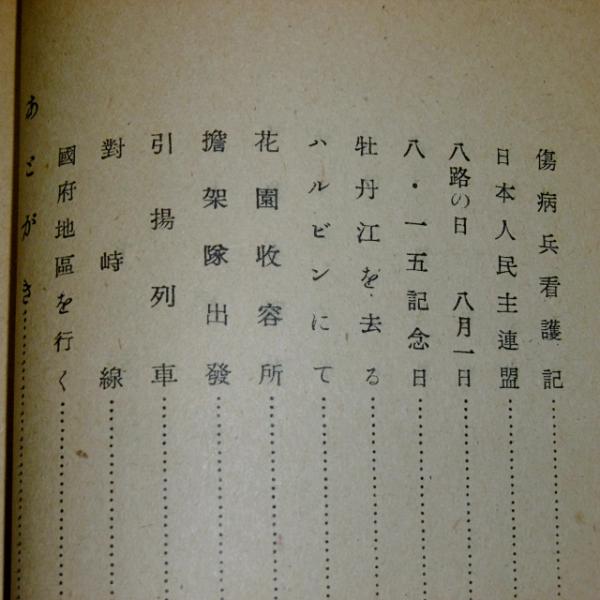 傷病兵看護記
日本人民主連盟
八路の日 八月一日
八・一五記念日
牡丹江を去る
ハルビンにて
花園收容所
擔架隊出發
引揚列車
對峙線
國府地區を行く
あとがき